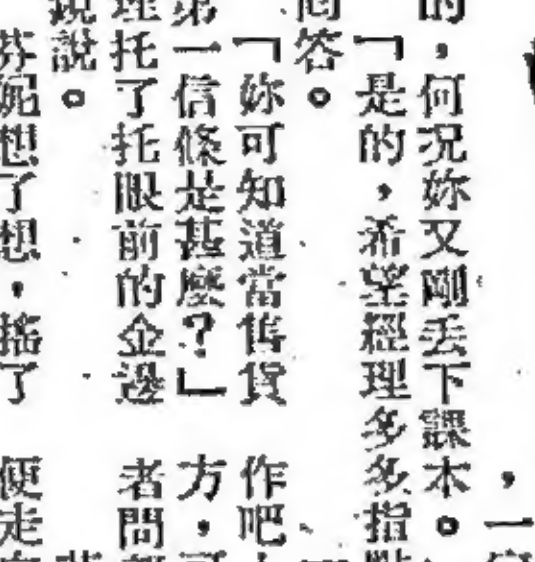 ，一
的，何況妳又剛丟下課本。
「是的，希望經理多多指點
答。
「妳可知道當售貨
作吧
第一信條是甚麼？」
方，
理托了托眼前的金邊
者問
說。
芬妮想了想，搖了
便走